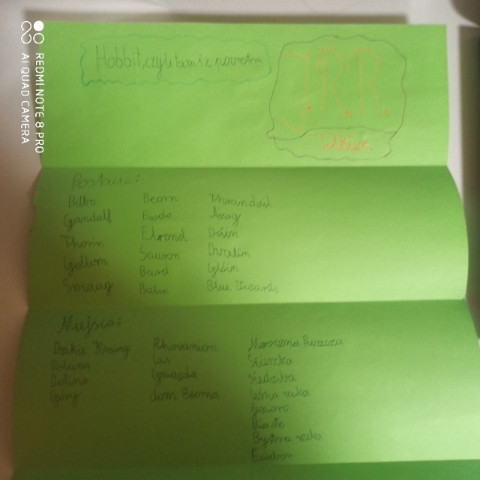 Hobbit, czyli tam i z powrotem
J.R.R.
Tolkien
Postacie:
Bilbo
Gandalf
Thorin
Gollum
Smaug
Beorn
Elrond
Sauron
Bard
Balin
Thranduil
Azag
Dáin
Dwalin
Glóin
Blue Wizards
Miejsca:
Dzikie Krainy
Dolina
Góry
Rhovanion
Las
Gniazdo
dom Beorna
Mroczna Puszcza
Ścieżka
rzeka
Jezioro
Miasto
Bystra rzeka
Erebor
REDMI NOTE 8 PRO
AI QUAD CAMERA